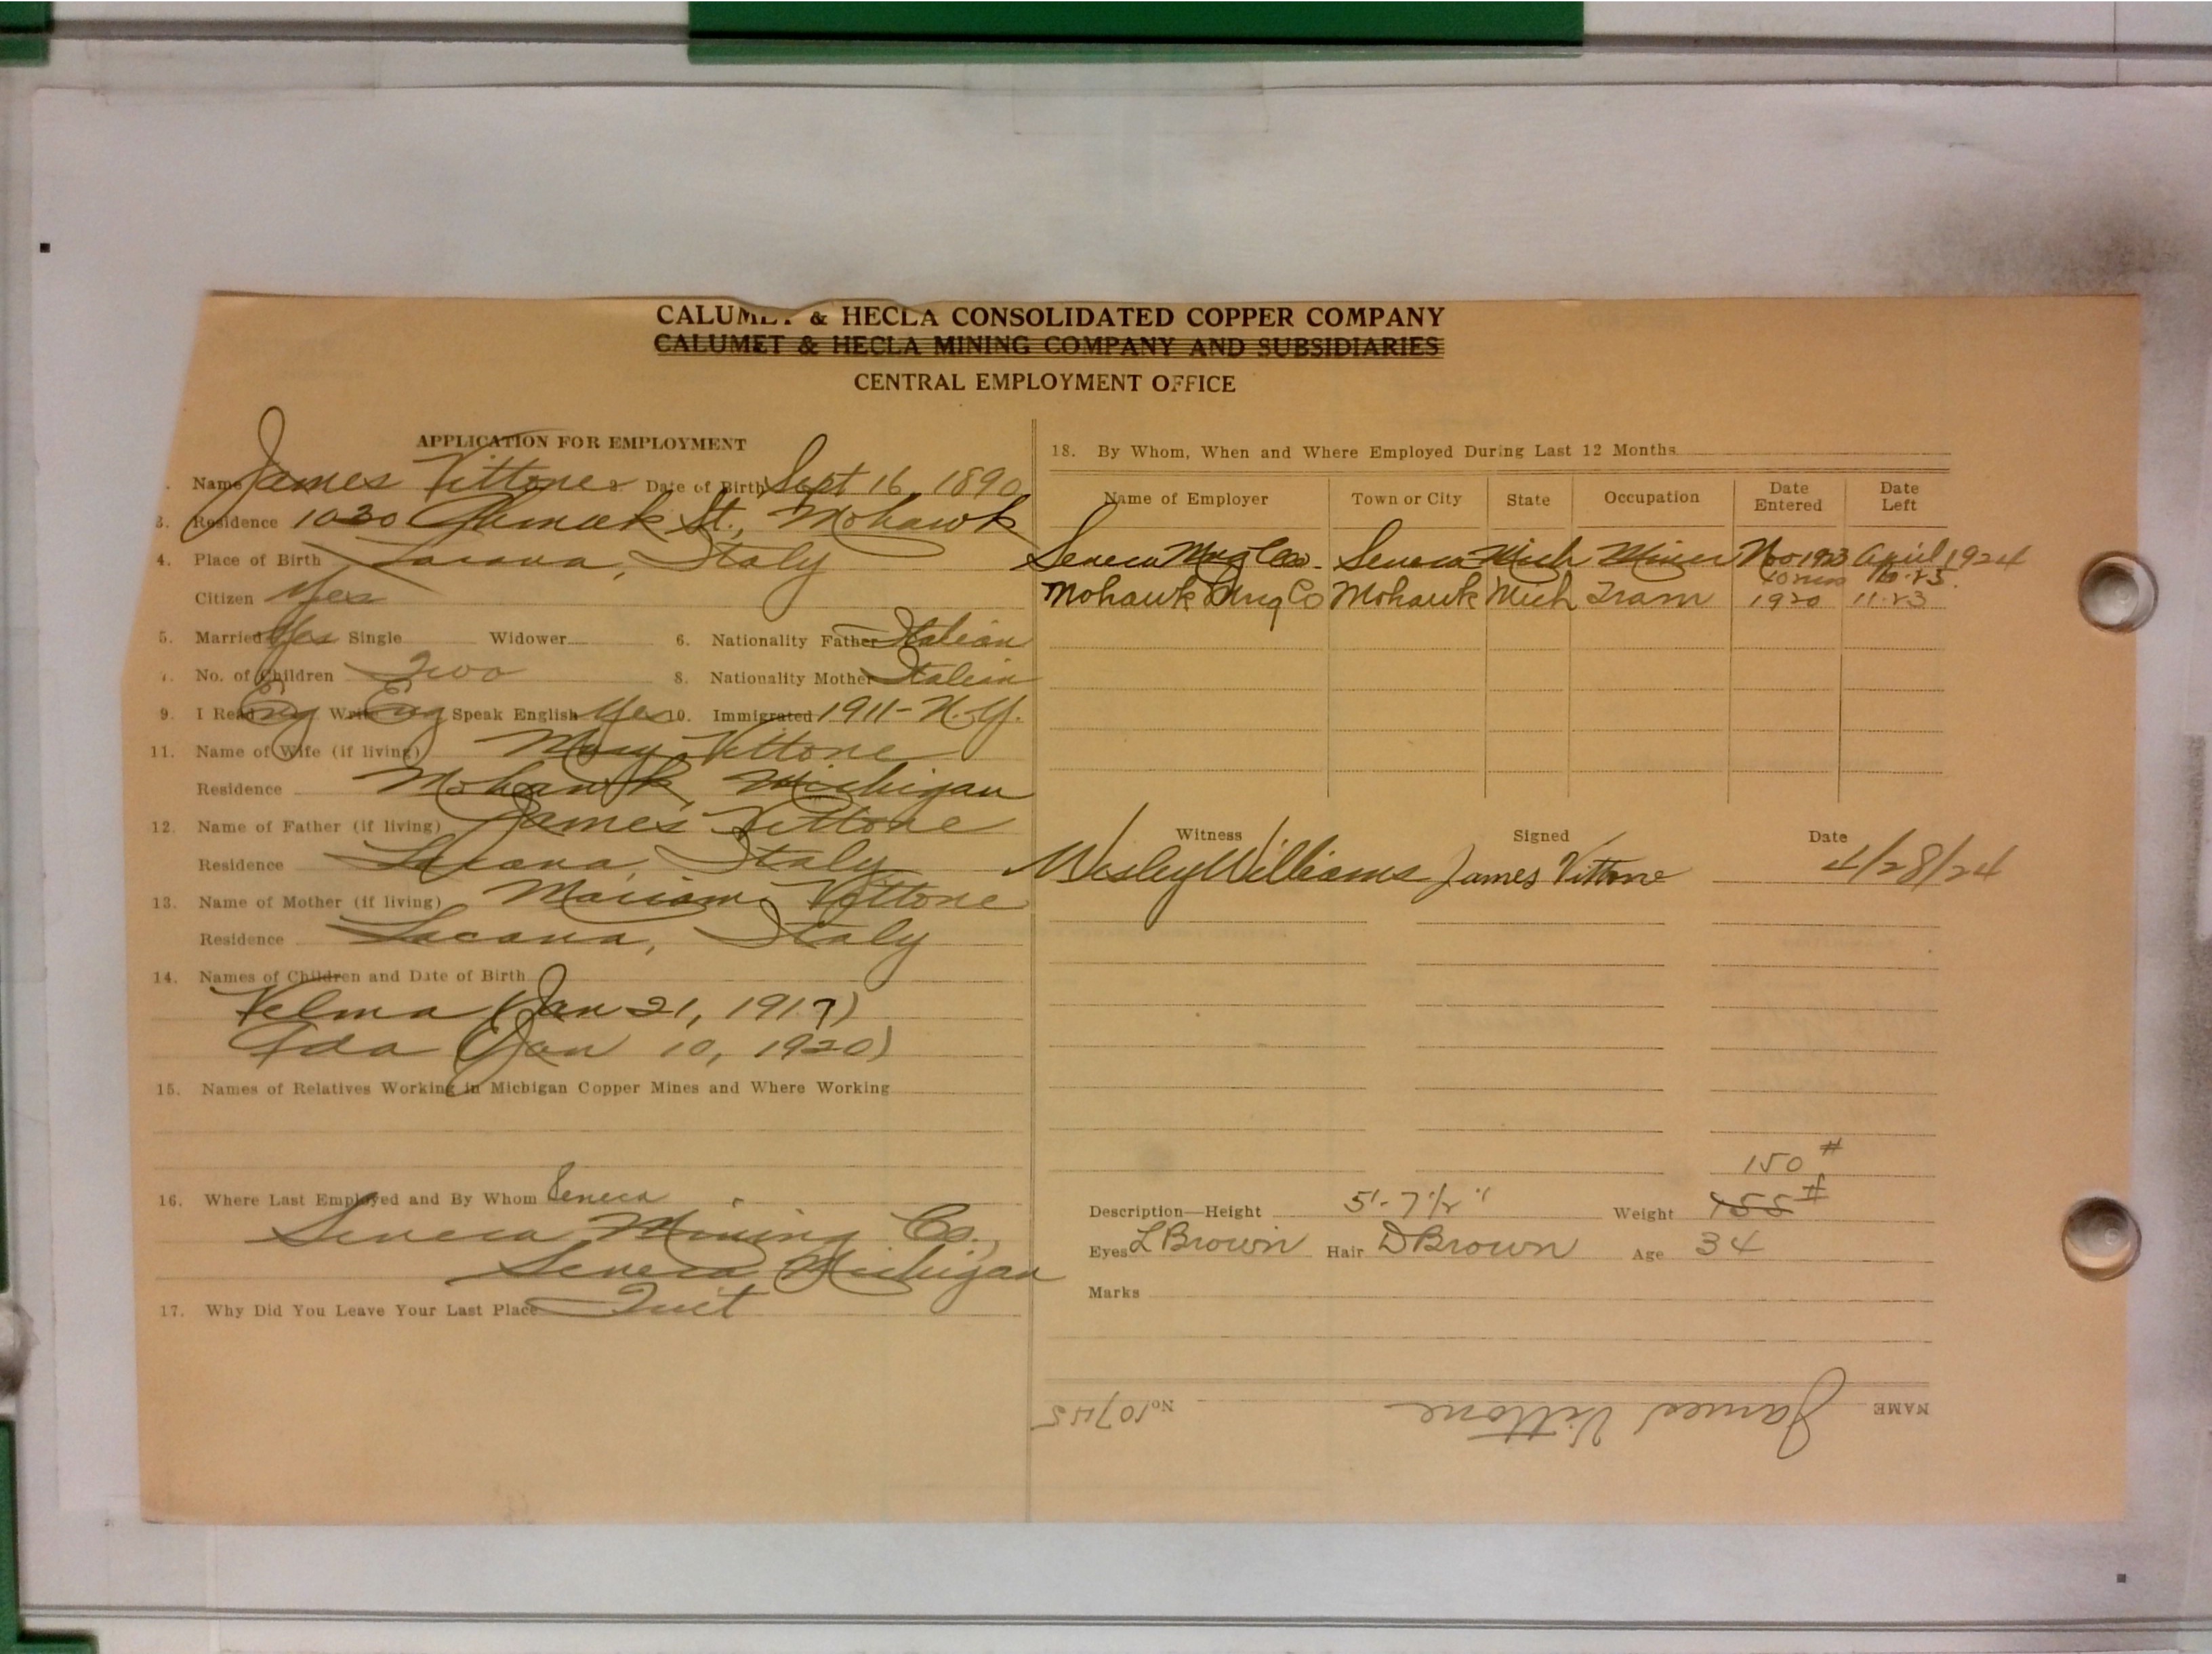 CALUMET & HECLA CONSOLIDATED COPPER COMPANY
CALUMET & HECLA MINING COMPANY AND SUBSIDIARIES
CENTRAL EMPLOYMENT OFFICE
APPLICATION FOR EMPLOYMENT
Name James Vittone 2. Date of Birth Sept 16, 1890
3. Residence 1030 St., Mohawk
4. Place of Birth Locana, Italy
Citizen Yes
5. Married Yes Single Widower 6. Nationality Father Italian
No. of Children Two 8. Nationality Mother Italian
9. I Read Eng Write Eng Speak English Yes 10. Immigrated 1911 - N.Y.
11. Name of Wife (if living) Mary Vittone
Residence Mohawk, Michigan
12. Name of Father (if living) James Vittone
Residence Locana, Italy
13. Name of Mother (if living) Vittone
Residence Locana, Italy
14. Names of Children and Date of Birth
Velma (Jan 21, 1917)
Ada (Jan 10, 1920)
15. Names of Relatives Working in Michigan Copper Mines and Where Working
16. Where Last Employed and By Whom Seneca
Seneca Mining Co.,
Seneca, Michigan
17. Why Did You Leave Your Last Place Quit
18. By Whom, When and Where Employed During Last 12 Months
Name of Employer Town or City State Occupation Date Entered Date Left
Seneca Mng Co. Seneca Mich Miner Nov 1923 April 1924
Mohawk Mng Co Mohawk Mich Tram 1920 11-23
Witness Signed Date
Wesley Williams James Vittone 4/28/24
150 #
Description—Height 5'-7 1/2" Weight 155 #
Eyes L Brown Hair D Brown Age 34
Marks
NAME James Vittone No. 10745